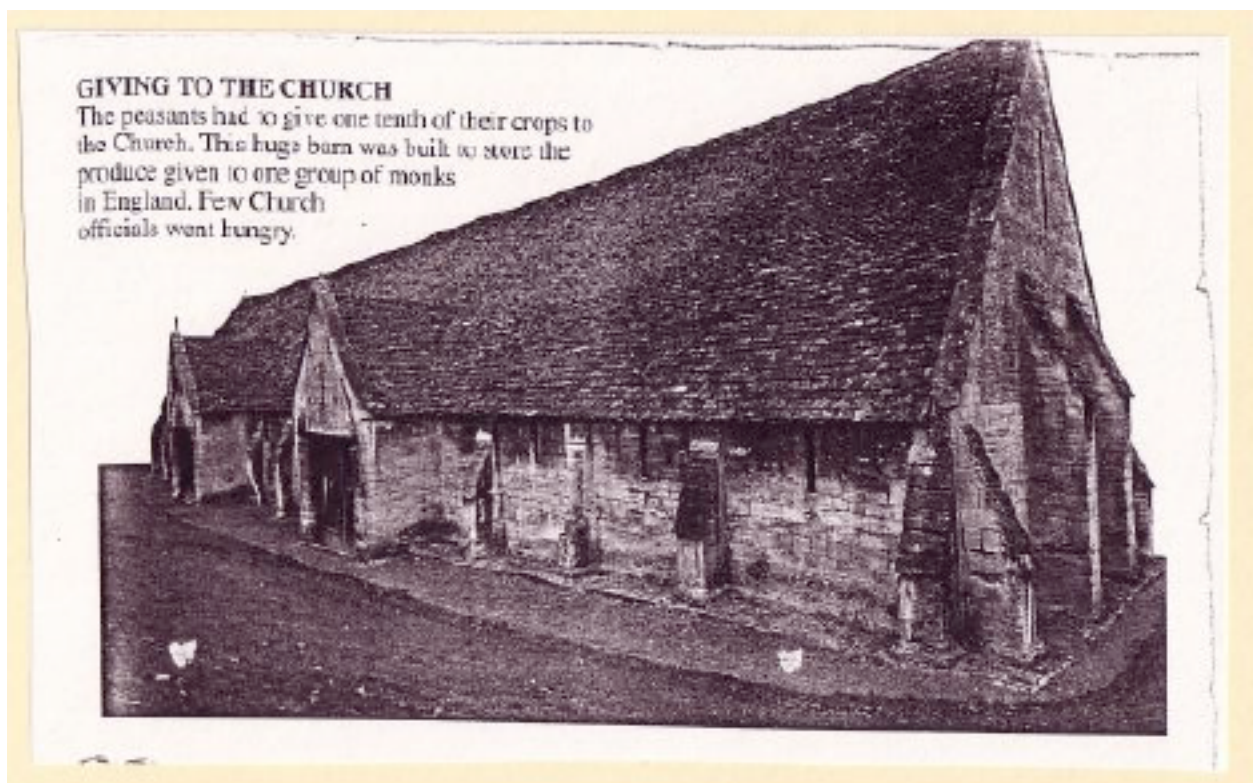 GIVING TO THE CHURCH
The peasants had to give one tenth of their crops to
the Church. This huge barn was built to store the
produce given to one group of monks
in England. Few Church
officials went hungry.